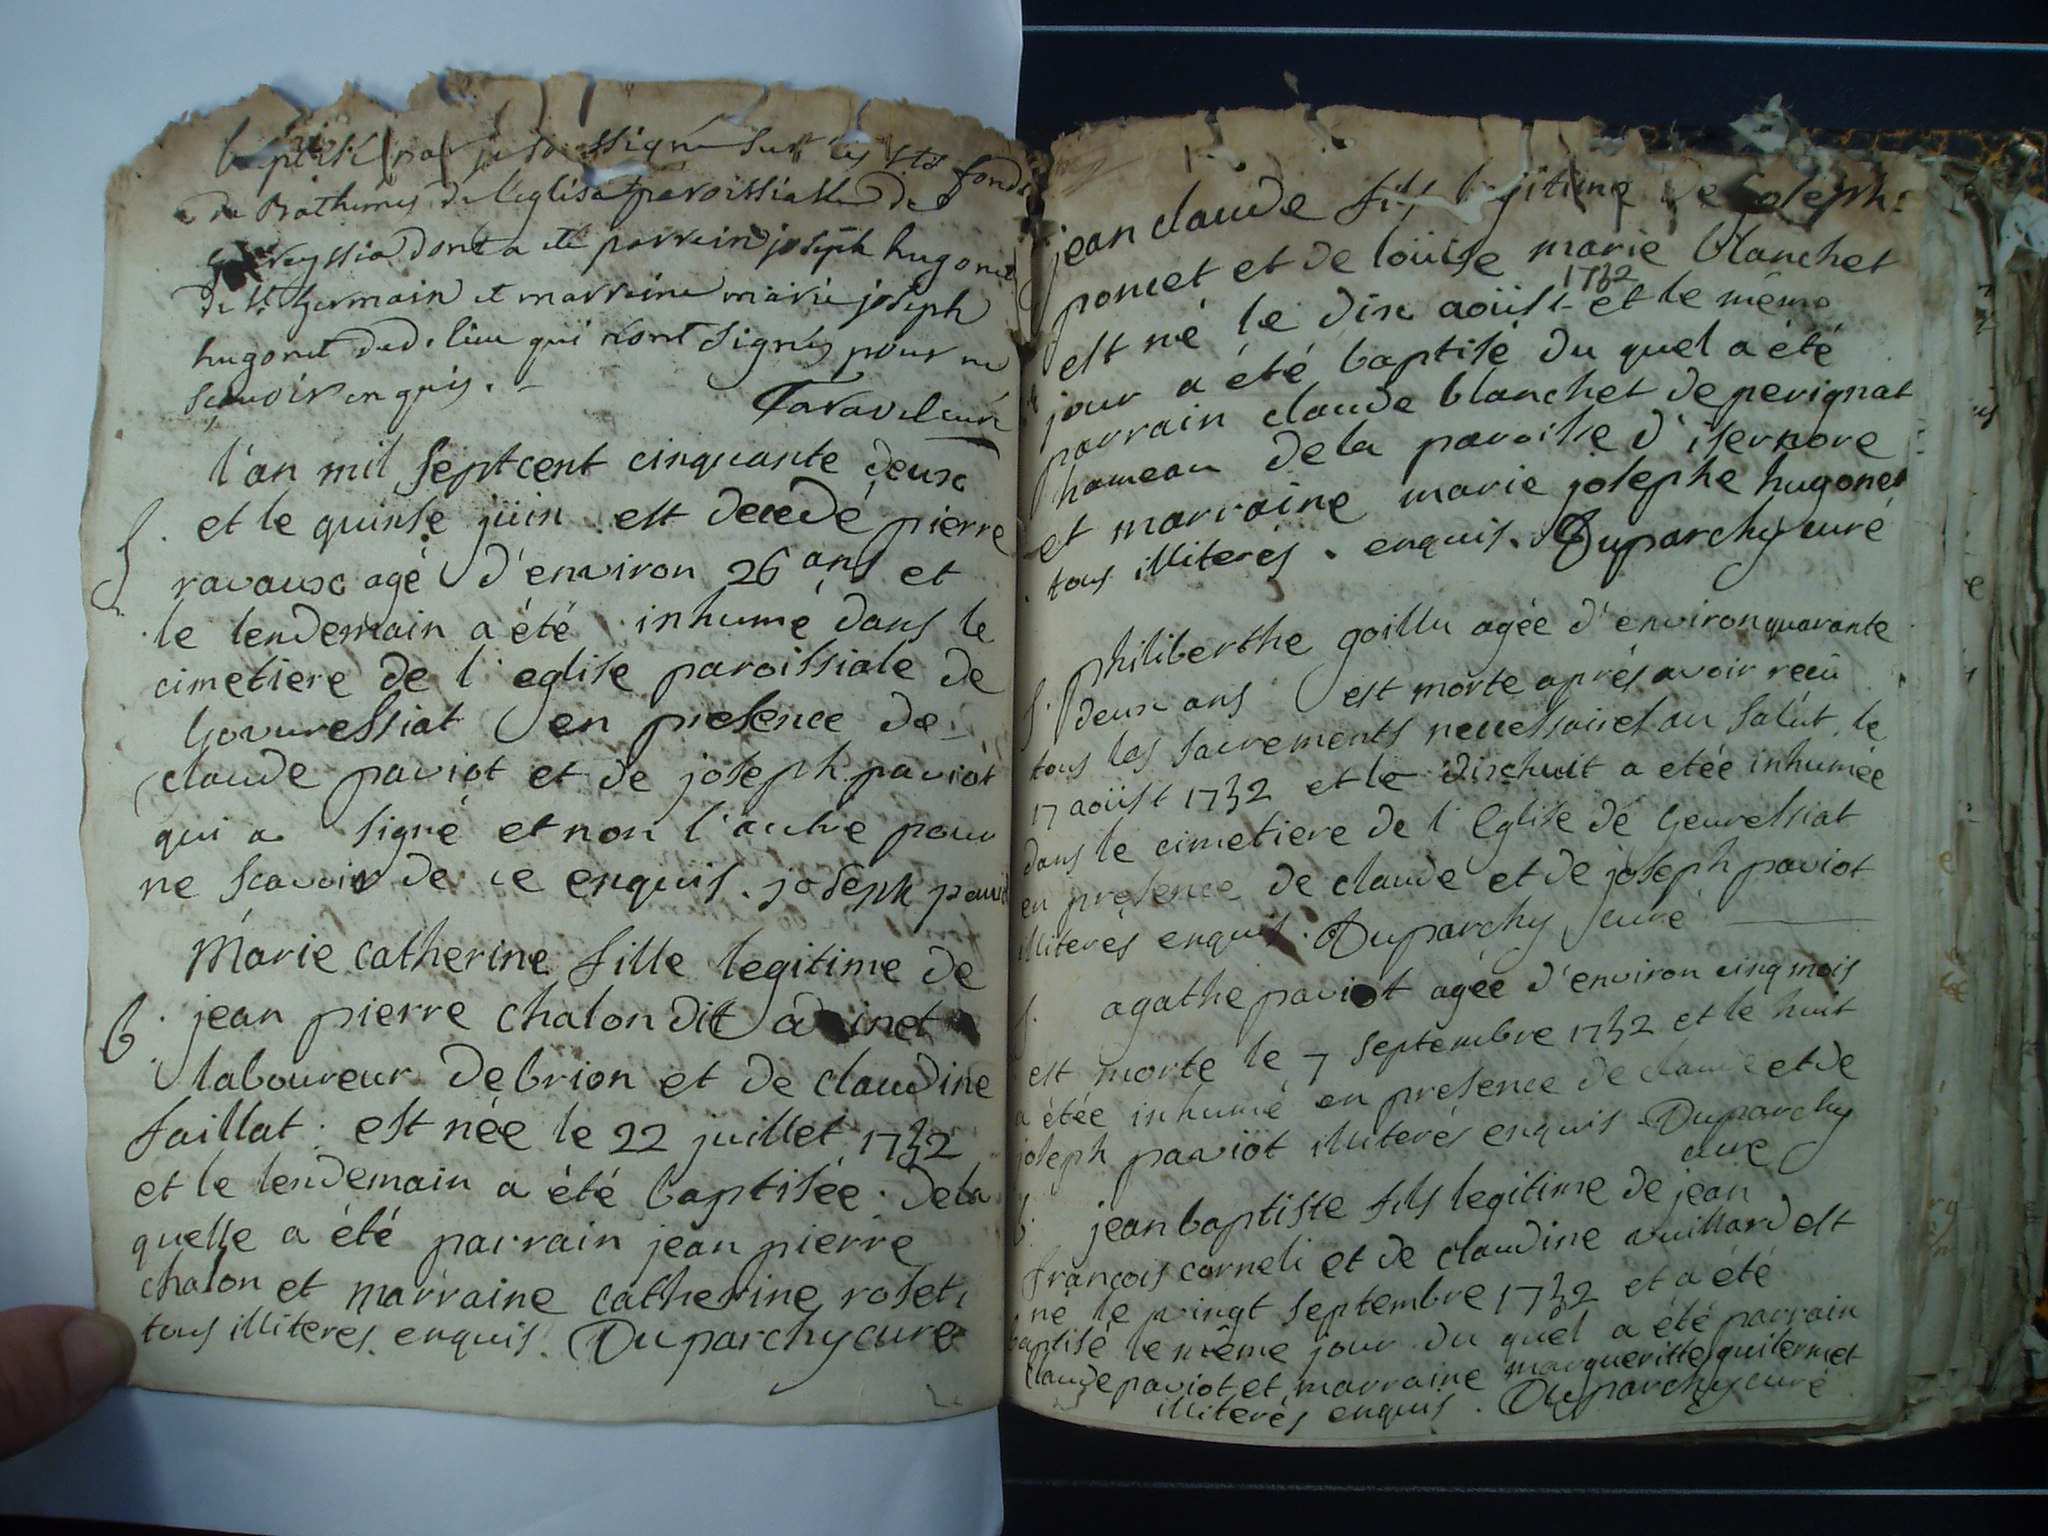 baptisé par je so ssigné sur les sts fonds
de Bathemes de l'eglise paroissialle de
geureyssia dont a eté parrain joseph hugonet
de st germain et marraine marie joseph
hugonet dud. lieu qui n'ont signés pour ne
scavoir enquis. -
Taravel curé
l'an mil septcent cinquante deux
et le quinse jüin est decedé pierre
S.
ravaux agé d'environ 26 ans et
le lendemain a été inhumé dans le
cimetiere de l'eglise paroissiale de
Geuvressiat en presence de
claude paviot et de joseph paviot
qui a signé et non l'autre pour
ne scavoir de ce enquis. joseph paviot
Marie catherine fille legitime de
B. jean pierre chalon dit inet
laboureur de brion et de claudine
faillat. est née le 22 juillet 1752
et le lendemain a été baptisée. dela
quelle a été parrain jean pierre
chalon et marraine catherine roset
tous illiteres. enquis. Duparchy curé
jean claude fils legitime de joseph
poncet et de loüise marie blanchet
1752
est né le dix aoüst et le même
jour a été baptisé du quel a été
parrain claude blanchet de perignat
hameau dela paroisse d'isernore
et marraine marie josephe hugonet
tous illiterés. enquis. Duparchy curé
philiberthe goillu agée d'environ quarante
S. deux ans est morte aprés avoir reçû
tous les sacrements necessaires au salût. le
17 aoüst 1752 et le dixhuit a etée inhumée
dans le cimetiere de l'Eglise de Geuressiat
en presence de claude et de joseph paviot
illiterés enquis. Duparchy curé
S. agathe paviot agée d'environ cinq mois
est morte le 7 septembre 1752 et le huit
a étée inhumé en presence de claude et de
joseph paviot illiterés enquis Duparchy
curé
b. jean baptiste fils legitime de jean
françois corneli et de claudine vuillard est
né le vingt septembre 1752 et a été
baptisé le même jour du quel a été parrain
claude paviot et marraine margueritte quitermet
illiterés enquis. Duparchy curé